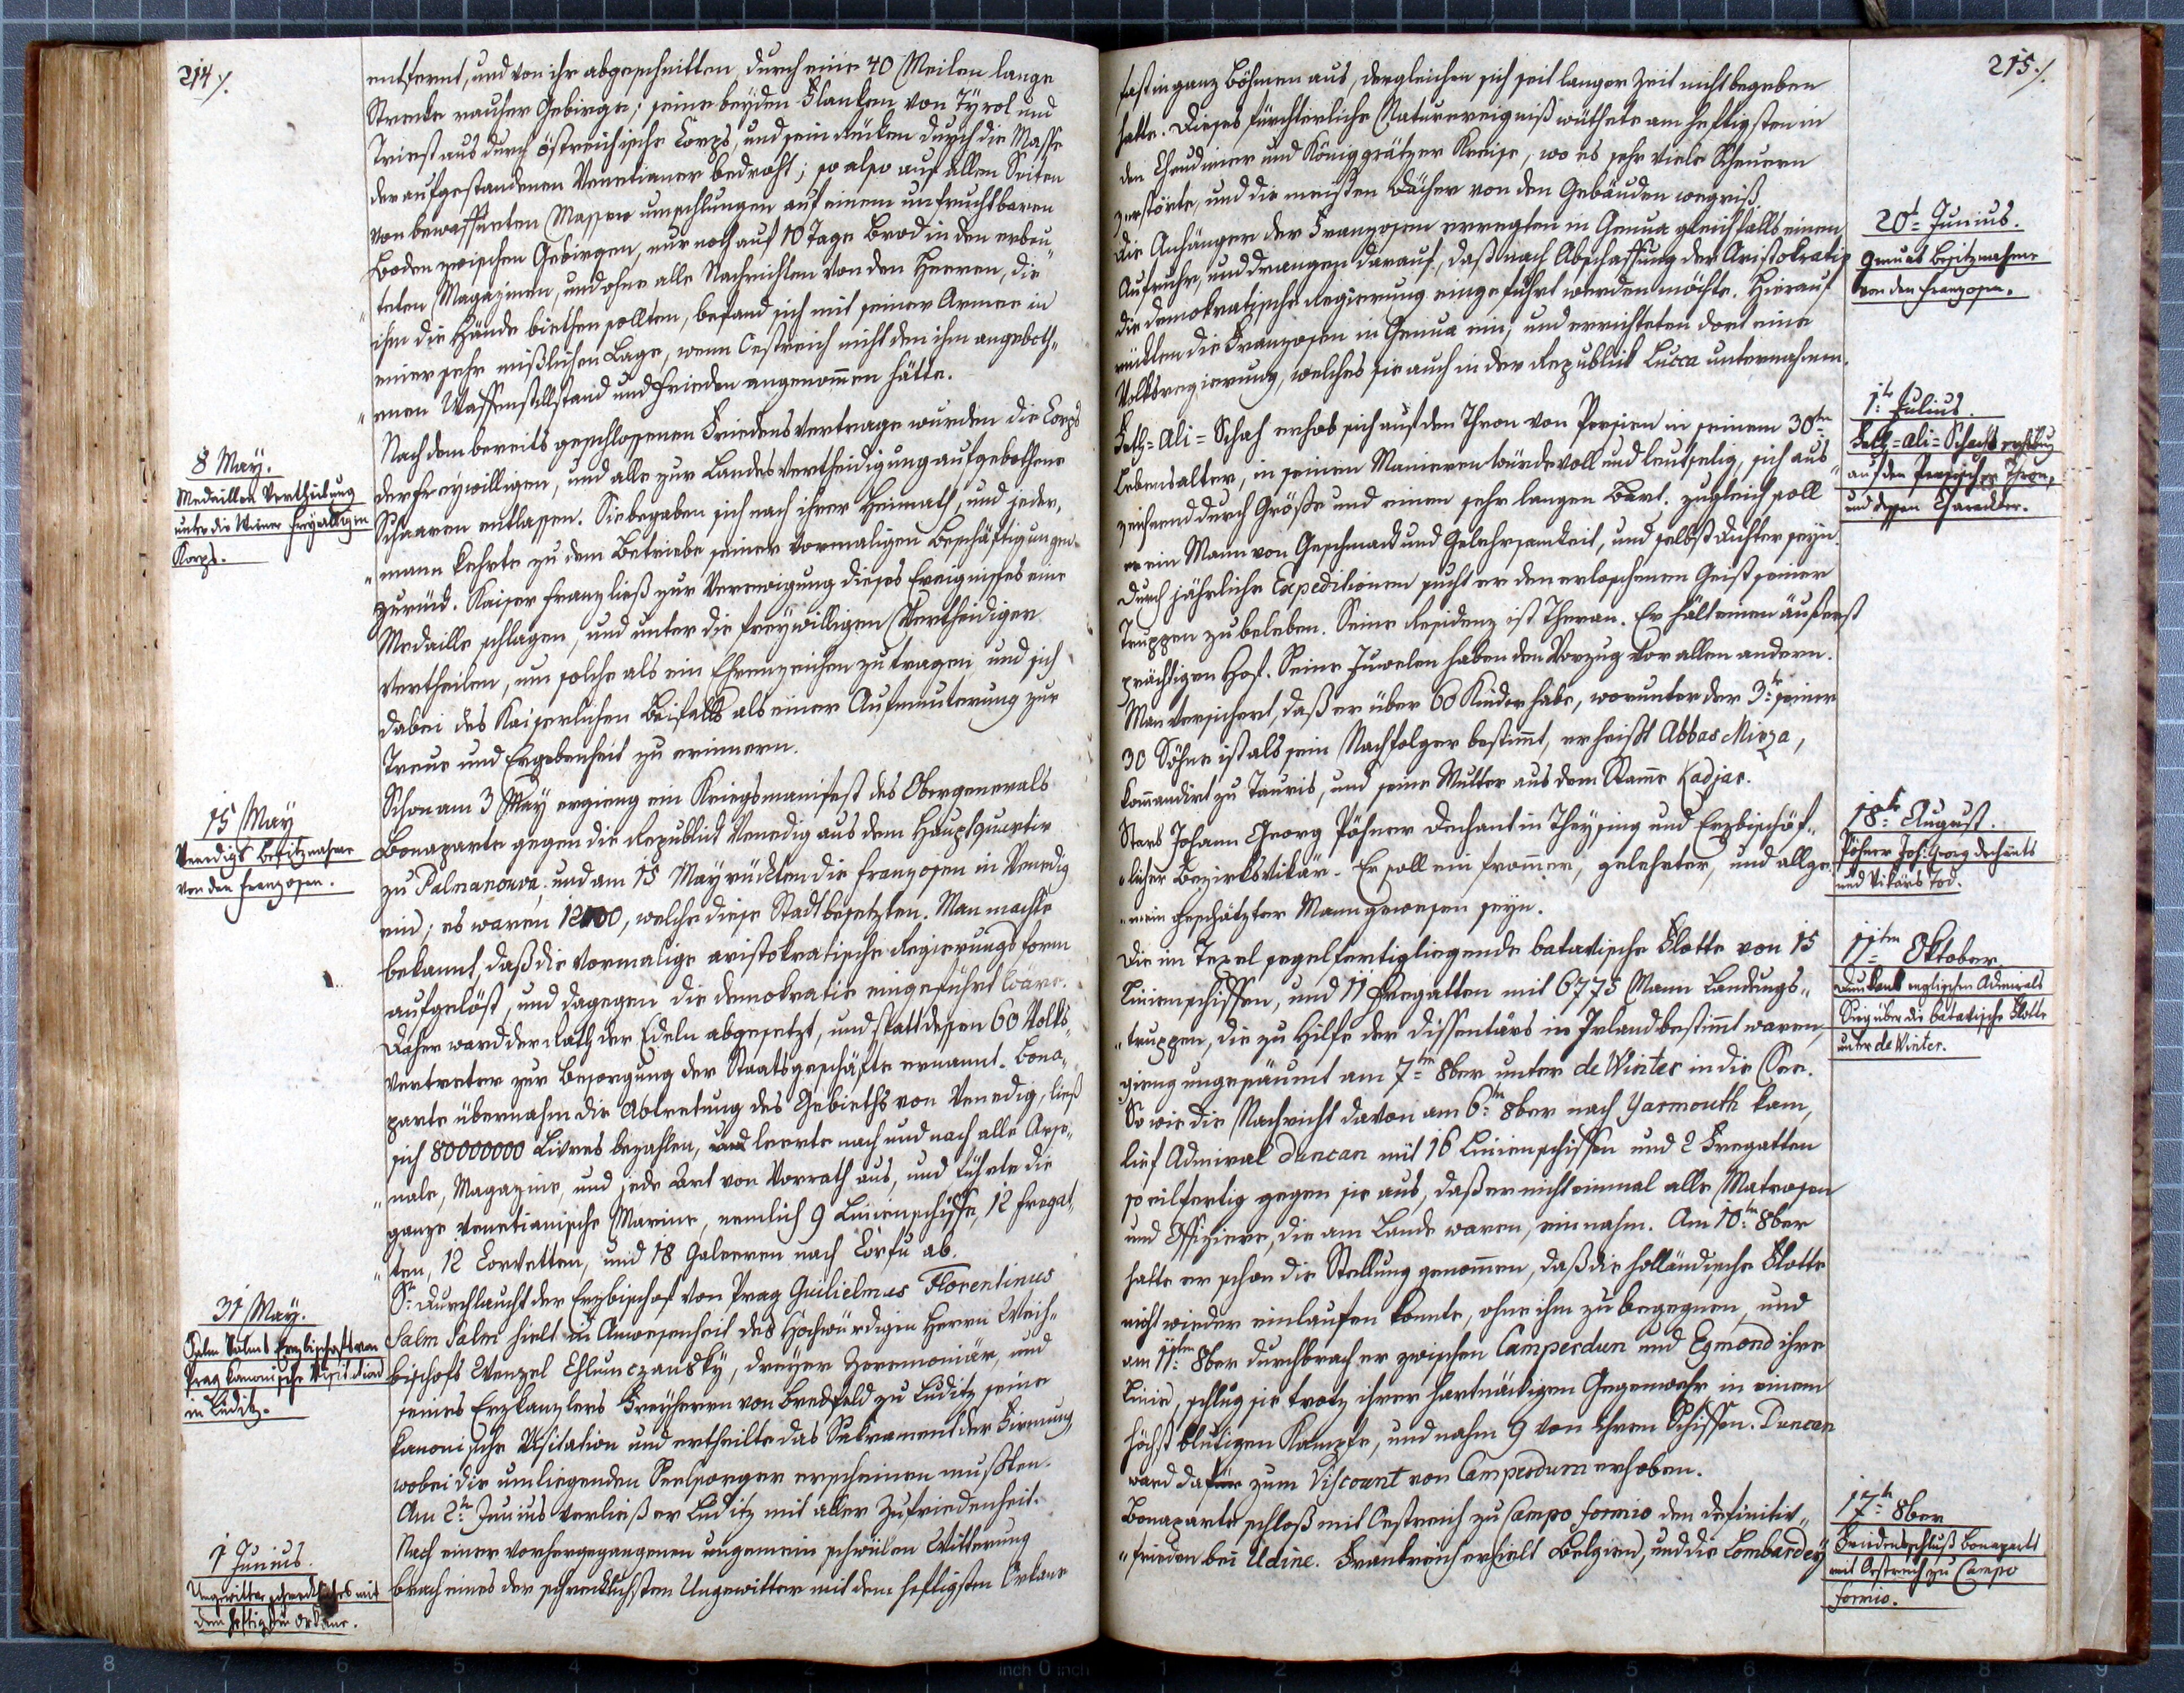 214 ⁒.
entfernt, und von ihr abgeschnitten durch eine 40 Meilen lange
Strecke rauher Gebirge; seine beyden Flanken von Tyrol und
Triest aus durch östreichische Corps, und sein Rücken durch die Masse
der aufgestandenen Venetianer bedroht; so also auf allen Seiten
von bewaffneten Massen umschlungen auf einem unfruchtbaren
Boden zwischen Gebirgen, nur noch auf 10 Tage Brod in den erbeu„
„teten Magazinen, und ohne alle Nachrichten von den Heeren, die
ihm die Hände biethen sollten, befand sich mit seiner Armee in
einer sehr mißlichen Lage, wenn Oestreich nicht den ihm angeboth„
„enen Waffenstillstand und Frieden angenommen hätte.
8 May.
Medaillen Vertheilung
unter die Wiener freywilligen
Korps.
Nach dem bereits geschlossenen Friedensvertrage wurden die Corps
der freywilligen, und alle zur Landesvertheidigung aufgebothene
Schaaren entlassen. Sie begaben sich nach ihrer Heimath, und jeder„
„mann kehrte zu dem Betriebe seiner vormaligen Beschäftigungen
zurück. Kaiser Franz ließ zur Verewigung dieses Ereignisses eine
Medaille schlagen, und unter die freywilligen Vertheidiger
vertheilen, um solche als ein Ehrenzeichen zu tragen, und sich
dabei des Kaiserlichen Beifalls als einer Aufmunterung zur
Treue und Ergebenheit zu erinnern.
15 May
Venedigs Besitznahme
von den Franzosen.
Schon am 3 May ergieng ein Kriegsmanifest des Obergenerals
Bonaparte gegen die Republick Venedig aus dem Hauptquartir
zu Palmanova. und am 15 May rückten die Franzosen in Venedig
ein; es waren 12000, welche diese Stadt besetzten. Man machte
bekannt, daß die vormalige aristokratische Regierungsform
aufgelöst, und dagegen die demokratie eingeführt wäre.
Daher ward der Rath der Edeln abgesetzt, und statt dessen 60 Volks„
vertreter zur Besorgung der Staatsgeschäfte ernannt. Bona„
parte übernahm die Abtretung des Gebieths von Venedig, ließ
sich 80000000 Livres bezahlen, und leerte nach und nach alle Arse„
„nale, Magazine, und jede Art von Vorrath aus, und führte die
ganze venetianische Marine, nemlich 9 Linienschiffe, 12 Fregat„
„ten, 12 Corvetten, und 18 Galeeren nach Corfu ab.
31 May.
Salm Salms Erzbischofs von
Prag kanonische Visitation
in Luditz.
Sr Durchlaucht der Erzbischof von Prag Guilielmus Florentinus
Salm Salm hielt in Anwesenheit des Hochwürdigen Herrn Weih„
bischofs Wenzel Chlumczansky, dreyer Zeremoniär, und
seines Erzkanzlers Freyherrn von Bredfeld zu Luditz seine
kanonische Visitation und ertheilte das Sakrament der Firmung,
wobei die umliegenden Seelsorger erscheinen mußten.
Am 2tn Junius verließ er Luditz mit aller Zufriedenheit.
1 Junius.
Ungewitter schreckliches mit
dem heftigsten Orkane.
Nach einer vorhergegangenen ungemein schwülen Witterung
brach eines der schrecklichsten Ungewitter mit dem heftigsten Orkane
215 ⁒.
fast in ganz Böhmen aus, dergleichen sich seit langer Zeit nicht begeben
hatte. Dieses fürchterliche Naturereigniß wüthete am heftigsten in
den Chrudimer und Königgrätzer Kreise, wo es sehr viele Scheuern
zerstörte, und die meisten Dächer von den Gebäuden wegriß.
20t Junius.
Genuas Besitznahme
von den Franzosen.
Die Anhänger der Franzosen erregten in Genua gleichfalls einen
Aufruhr, und drangen darauf, daß nach Abschaffung der Aristokratie
die demokratische Regierung eingeführt werden möchte. Hierauf
rückten die Franzosen in Genua ein, und errichteten dort eine
Volksregierung, welches sie auch in der Republick Lucca unternahmen.
1te Julius.
Feth=Ali=Schachs erhebung
auf den Persischen Thron,
und dessen Charackter.
Feth=Ali=Schah erhob sich auf den Thron von Persien in seinem 30tn
Lebensalter, in seinen Manieren würdevoll und leutselig, sich aus„
zeichnend durch Größe und einen sehr langen Bart. zugleich soll
er ein Mann von Geschmack und Gelehrsamkeit, und selbst Dichter seyn.
Durch jährliche Expeditionen sucht er den erloschenen Geist seiner
Truppen zu beleben. Seine Residenz ist Theran. Er hält einen äußerst
prächtigen Hof. Seine Juwelen haben den Vorzug vor allen andern.
Man versichert, daß er über 60 Kinder habe, worunter der 3te seiner
30 Söhne ist als sein Nachfolger bestimmt, er heißt Abbas Mirza,
kommandirt zu Tauris, und seine Mutter aus dem Stamme Kadjar.
18te August.
Pöhner Joh: Georg dechants
und Vikärs Tod.
Starb Johann Georg Pöhner Dechant in Theysing und Erzbischöf„
„licher Bezirksvikär. Er soll ein frommer, gelehrter, und allge„
„mein geschätzter Mann gewesen seyn.
11ten Oktober.
Dunkans englischen Admirals
Sieg über die batavische Flotte
unter de Winter.
Die im Texel segelfertigliegende batavische Flotte von 15
Linienschiffen, und 11 Fregatten mit 6775 Mann Landungs„
„truppen, die zu Hilfe der dissentärs in Irland bestimmt waren,
gieng ungesäumt am 7tn 8ber unter de Winter in die See.
So wie die Nachricht davon am 6tn 8ber nach Yarmouth kam,
lief Admiral Duncan mit 16 Linienschiffen und 2 Fregatten
so eilfertig gegen sie aus, daß er nicht einmal alle Matrosen
und Offiziere, die am Lande waren, einnahm. Am 10tn 8ber
hatte er schon die Stellung genommen, daß die holländische Flotte
nicht wieder einlaufen konnte, ohne ihm zu begegnen, und
am 11ten 8ber durchbrach er zwischen Camperdun und Egmond ihre
Linie, schlug sie trotz ihrer hartnäckigen Gegenwehr in einem
höchst blutigen Kampfe, und nahm 9 von ihren Schiffen. Duncan
ward dafür zum Viscount von Camperdum erhoben.
17t 8ber
Friedensschluß Bonaparts
mit Oestreich zu Campo
formio.
Bonaparte schloß mit Oestreich zu Campo formio den definitiv„
„frieden bei Udine. Frankreich erhielt Belgien, und die Lombardey